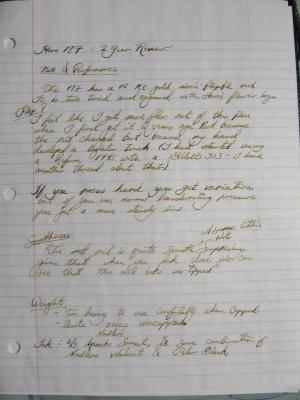 Hero 117 - 2 Year Review
Nib & Performance
The 117 has a 12 Kt gold, semi flexible and
is two toned, and engraved with Hero's flower logo
Flex:
I feel like I get more flex out of this pen
when I first got it 2 years ago. Not because
the nib changed but because my hand
a lighter touch (I had started using
a 1945 with a Gillott 303 - I have
another thread about that)
If you press hard you get variation,
but if you use normal handwriting pressure
you get a more steady line.
Smoothness
The nib is quite smooth surprising
given that when you look close you can
see that the nib was
Weight
- Too heavy to use comfortably when capped
- Quite nice uncapped
Ink: 2/3 Apache Sunset, 1/3 some combination of
Noodlers Walnut & Polar Black